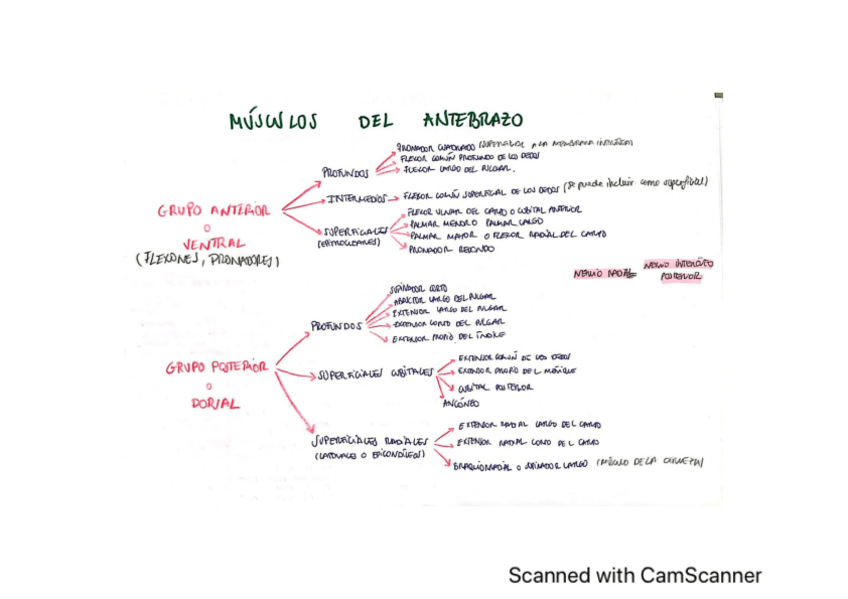 MÚSCULOS DEL ANTEBRAZO
PRONADOR CUADRADO (SUPERFICIAL A LA MEMBRANA INTERÓSEA)
FLEXOR COMÚN PROFUNDO DE LOS DEDOS
PROFUNDOS
FLEXOR LARGO DEL PULGAR.
INTERMEDIOS → FLEXOR COMÚN SUPERFICIAL DE LOS DEDOS (se puede incluir como superficial)
GRUPO ANTERIOR
O
VENTRAL
(FLEXORES, PRONADORES)
FLEXOR ULNAR DEL CARPO O CUBITAL ANTERIOR
PALMAR MENOR O PALMAR LARGO
SUPERFICIALES
(EPITROCLEARES)
PALMAR MAYOR O FLEXOR RADIAL DEL CARPO
PRONADOR REDONDO
NERVIO RADIAL = NERVIO INTERÓSEO
POSTERIOR
SUPINADOR CORTO
ABDUCTOR LARGO DEL PULGAR
EXTENSOR LARGO DEL PULGAR
PROFUNDOS
EXTENSOR CORTO DEL PULGAR
EXTENSOR PROPIO DEL ÍNDICE
GRUPO POSTERIOR
O
DORSAL
EXTENSOR COMÚN DE LOS DEDOS
SUPERFICIALES CUBITALES
EXTENSOR PROPIO DEL MEÑIQUE
CUBITAL POSTERIOR
ANCÓNEO
EXTENSOR RADIAL LARGO DEL CARPO
SUPERFICIALES RADIALES
(LATERALES O EPICONDÍLEOS)
EXTENSOR RADIAL CORTO DEL CARPO
BRAQUIORRADIAL O SUPINADOR LARGO (MÚSCULO DE LA CERVEZA)
Scanned with CamScanner